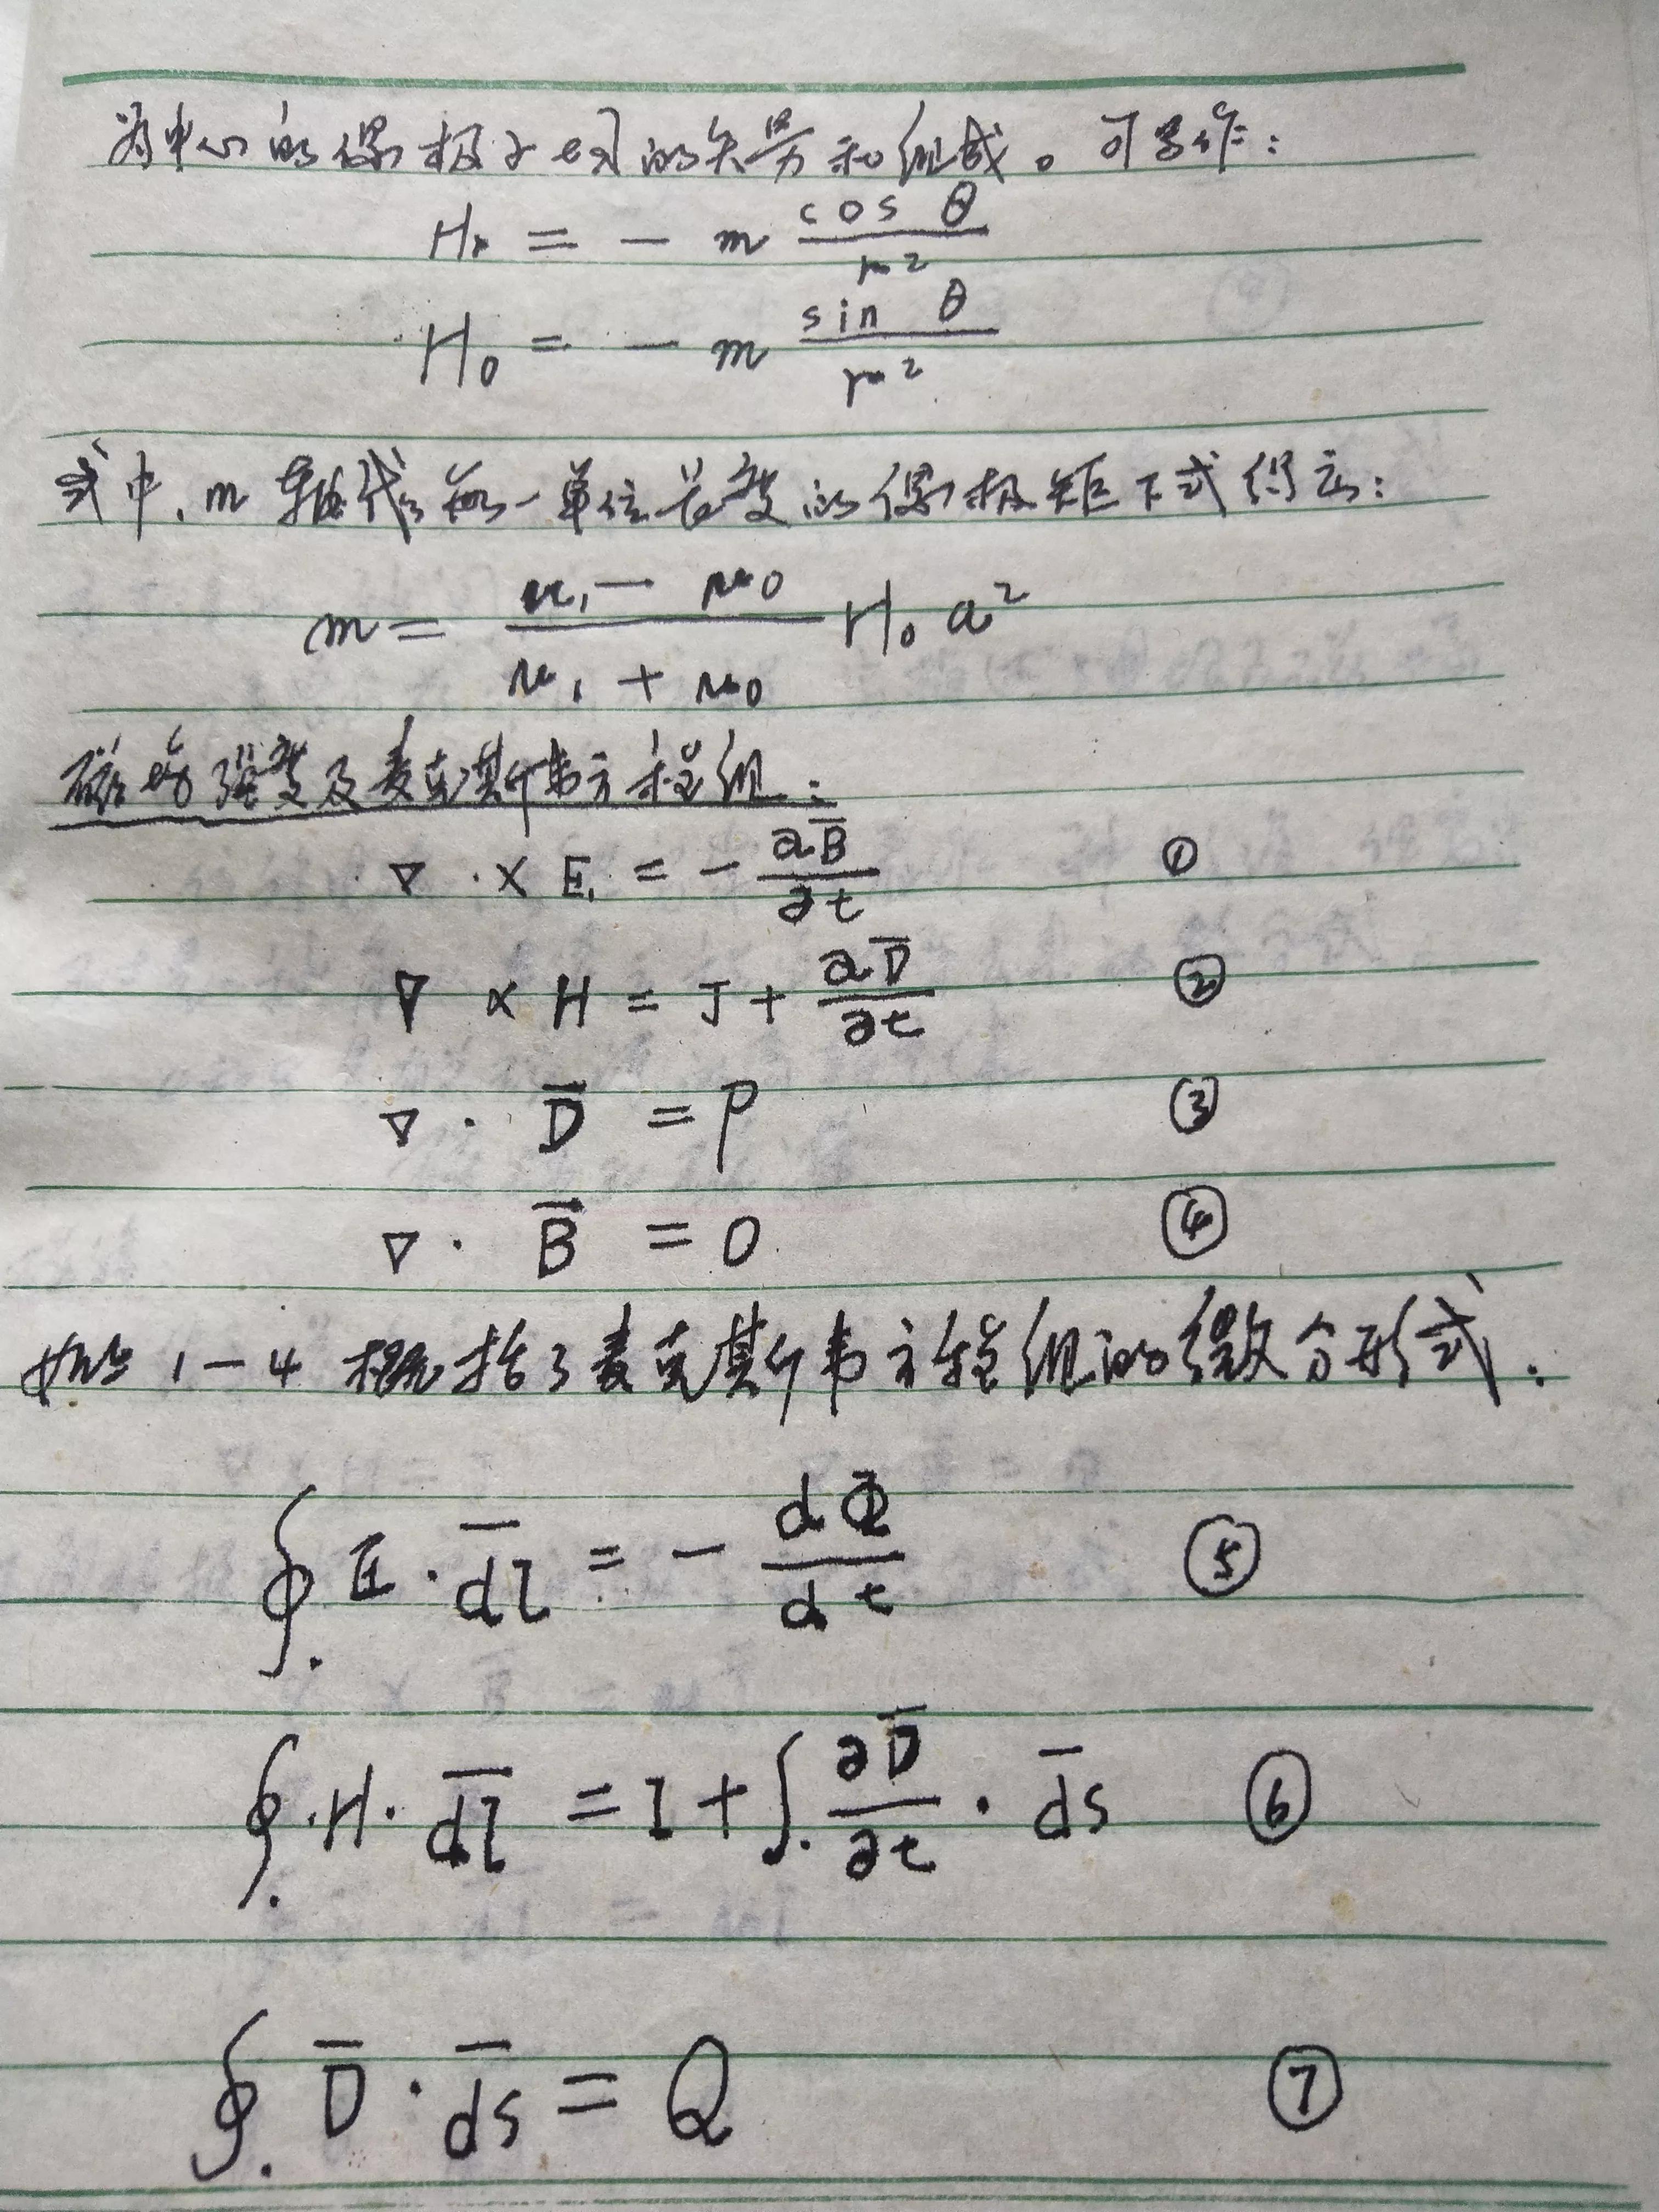 为中心的偶极子场的矢势和组成。可写作:
Hr = - m cos θ / r²
H0 = - m sin θ / r²
式中, m 轴代每一单位长度的偶极矩下式得出:
m = (μ₁ - μ0) / (μ₁ + μ0) H₀ a²
磁场强度及麦克斯韦方程组:
∇ · × E = - ∂B̄ / ∂t ①
∇ × H = J + ∂D̄ / ∂t ②
∇ · D̄ = ρ ③
∇ · B̄ = 0 ④
1-4 概括了麦克斯韦方程组的微分形式:
∮. E · d̄l̄ = - dΦ / dt ⑤
∮. · H · d̄l̄ = I + ∫. ∂D̄ / ∂t · d̄s ⑥
∮. D̄ · d̄s = Q ⑦